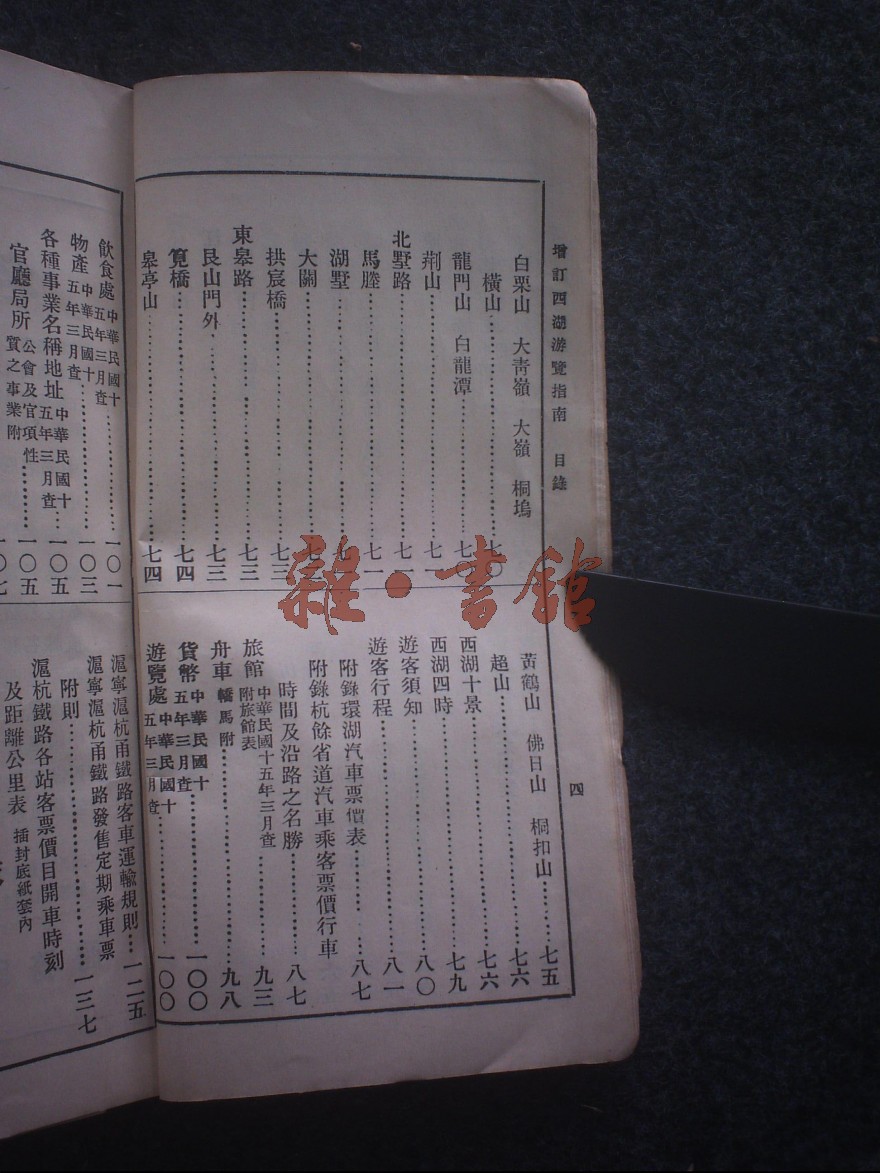 增訂西湖游覽指南　目錄
四
白栗山　大青嶺　大嶺　桐塢
橫山……七〇
龍門山　白龍潭……七〇
荊山……七一
北墅路……七一
馬塍……七一
湖墅……七一
大關……七二
拱宸橋……七三
東皋路……七三
艮山門外……七三
筧橋……七四
皋亭山……七四
黃鶴山　佛日山　桐扣山……七五
超山……七六
西湖十景……七六
西湖四時……七九
遊客須知……八〇
遊客行程……八一
附錄環湖汽車票價表……八七
附錄杭餘省道汽車乘客票價行車
時間及沿路之名勝……八七
旅館 中華民國十五年三月查 附旅館表……九三
舟車 轎馬附……九八
貨幣 中華民國十五年三月查……一〇〇
遊覽處 中華民國十五年三月查……一〇〇
飲食處 中華民國十五年三月查……一〇一
物產 中華民國十五年三月查……一〇三
各種事業名稱地址 中華民國十五年三月查……一〇五
官廳局所 公會及官項性質之事業附……一〇七
滬寧滬杭甬鐵路客車運輸規則……一二五
滬寧滬杭甬鐵路發售定期乘車票
附則……一三七
滬杭鐵路各站客票價目開車時刻
及距離公里表 插封底紙套內
雜·書館